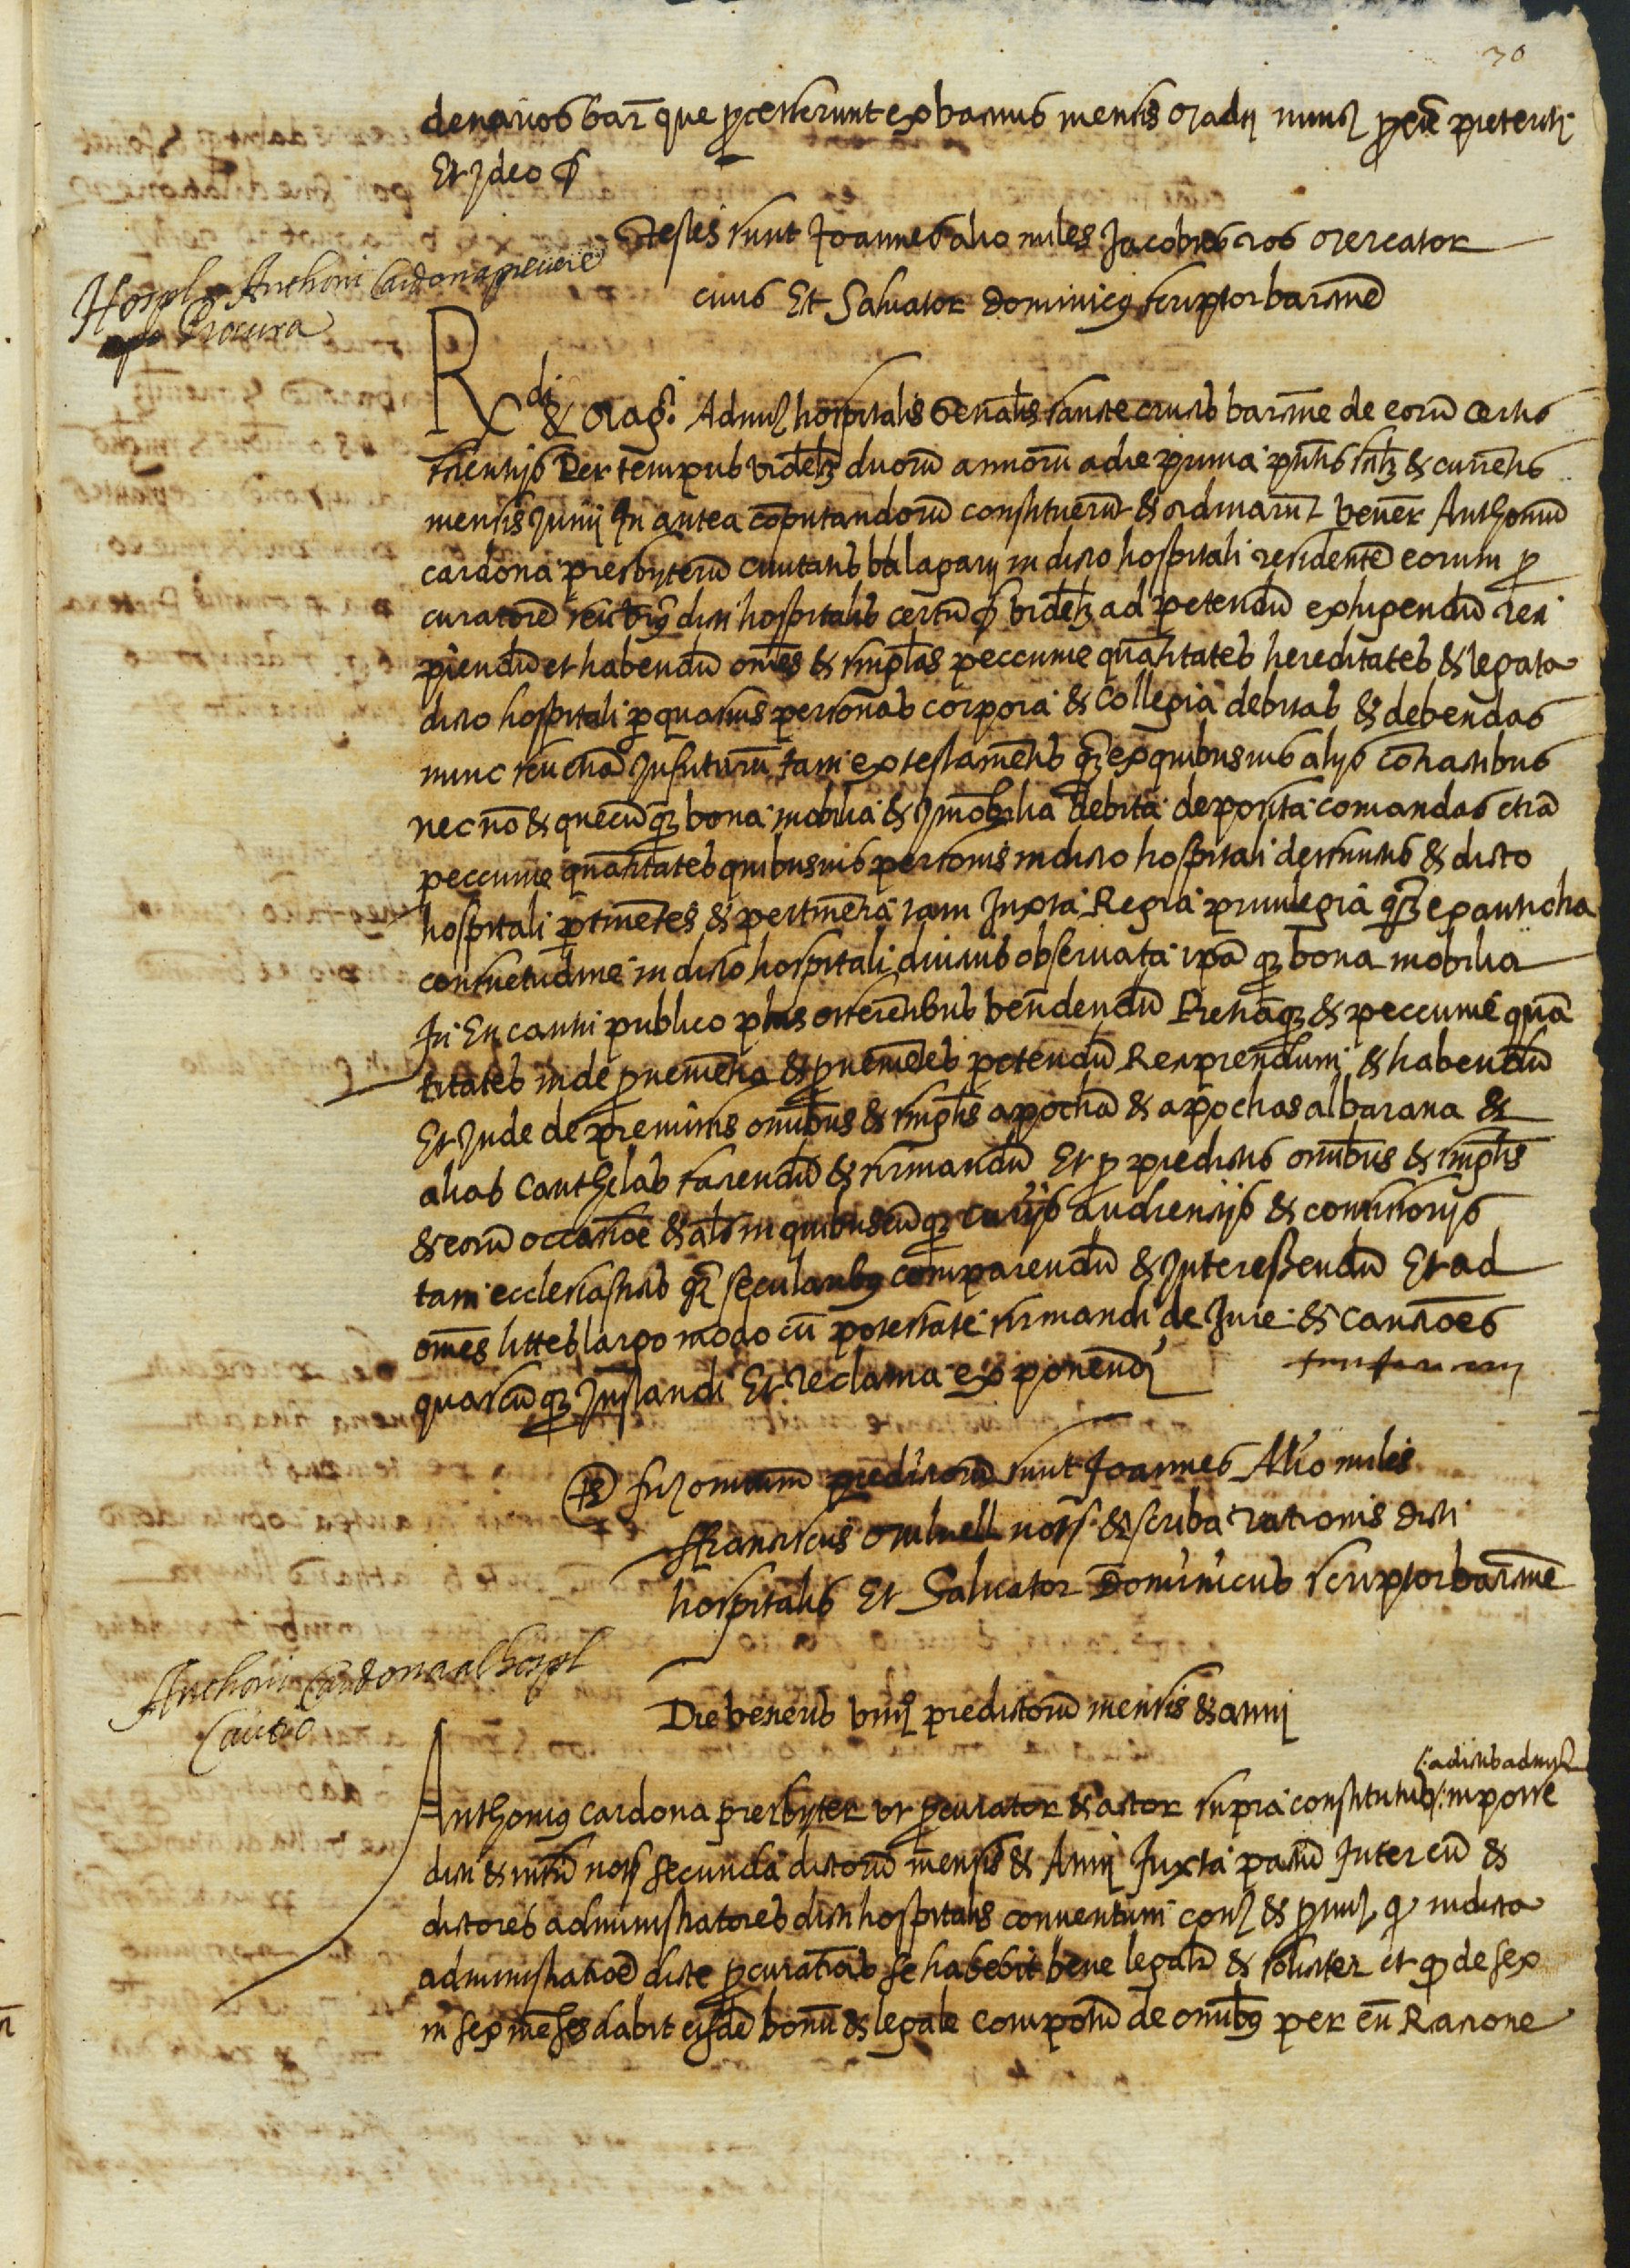 30
denarios bar̄ que processerunt ex bacinis mensis Madij nunc proxē preteriti
Et Ideo &
Testes sunt Joannes alio miles Jacobus ros Mercator
civis Et Salvator Dominicus scriptor barcīne
Hospl Anthoni Cardona prevere
Procura
R.di & Mag.ci Admi hospitalis Genālis sancte crucis barcīne de eorū certis
scientijs Per tempus videlz duorū annorū a die prima pn̄tis sclz & currētis
mensis Junij In antea cōputandorū constituerūt & ordinarūt vener. Anthoniū
cardona presbyterū civitatis balagarij in dicto hospitali residentē eorum pro
curatorē seu brs dicti hospitalis certū & videlz ad petendū exhigendū reci
piendū et habendū omēs & singlas peccunie quātitates hereditates & legata
dicto hospitali p quasvis personas corpora & collegia debitas & debendas
nunc seu etiā Infuturū tam ex testamētis qz ex quibusvis alijs cōtractibus
nec nō & quecūqz bona mobilia & Imobilia debita deposita comandas etiā
peccunie quātitates quibusvis personis in dicto hospitali defunctis & dicto
hospitali ptinētes & pertinētia tam Juxta Regia privilegia qz ex anticha
consuetudine in dicto hospitali divitus observata ipā qz bona mobilia
In Encanti publico plus offerētibus vendendū Preciaqz & peccunie quā
titates inde pvenientia & pvenientes petendū Recipiendum & habendū
Et Inde de premissis omibus & singlis apochā & apochas albarana &
alias cauthelas faciendū & firmandū Et p predictis omibus & singlis
& eorū occasiōe & als in quibuscūqz curijs audientijs & consistorijs
tam ecclesiasticis qz secularibus comparendū & Interessendū Et ad
omēs littes largo modo cū potestate firmandi de Jure & cautiōes
quascūqz Instandi Et reclama exponendi
Ts huj omnium predictorū sunt Joannes Alio miles
ffranciscus Mulnell nots & scriba rationis dicti
hospitalis Et Salvator Dominicus scriptor barcīne
Anthoni Cardona al hospl
Cautio
Die veneris viiij predictorū mensis & anni
(: a dictis admi
Anthonius Cardona presbyter ut pcurator & actor supra constitutus :/ in posse
dicti & infri nots secunda dictorū mensis & Anni Juxta pactū Inter eū &
dictores administratores dicti hospitalis conventum conz & pmiz q in dicta
administratiōe dicte pcuratiōis se habebit bene legalr̄ & soliciter et q de sex
in sex mēses dabit eisdē bonū & legale compotū de omibus per eū Racione